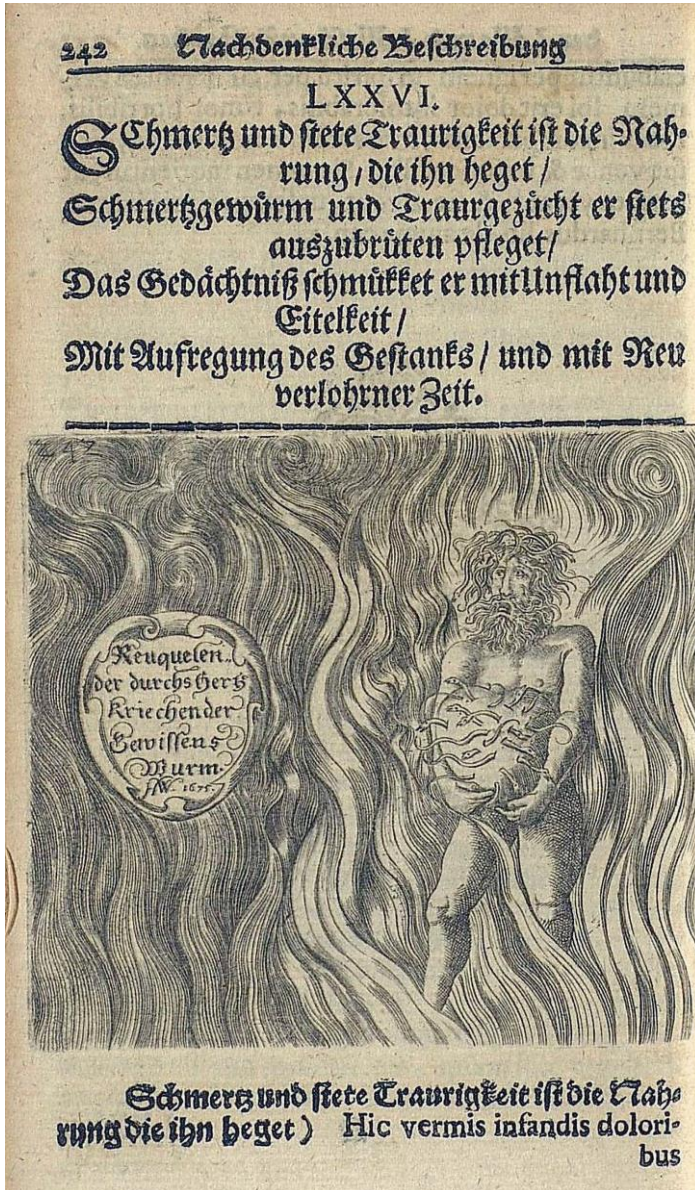 242 Nachdenkliche Beschreibung
LXXVI.
SChmertz und stete Traurigkeit ist die Nah-
rung, die ihn heget /
Schmertzgewürm und Traurgezücht er stets
auszubrüten pfleget /
Das Gedächtniß schmükket er mit Unflaht und
Eitelkeit /
Mit Aufregung des Gestanks / und mit Reu
verlohrner Zeit.
242
Reuquelen.
der durchs Hertz
Kriechender
Gewissens
Wurm.
HW. 1675.
Schmertz und stete Traurigkeit ist die Nah-
rung die ihn heget) Hic vermis infandis dolori-
bus